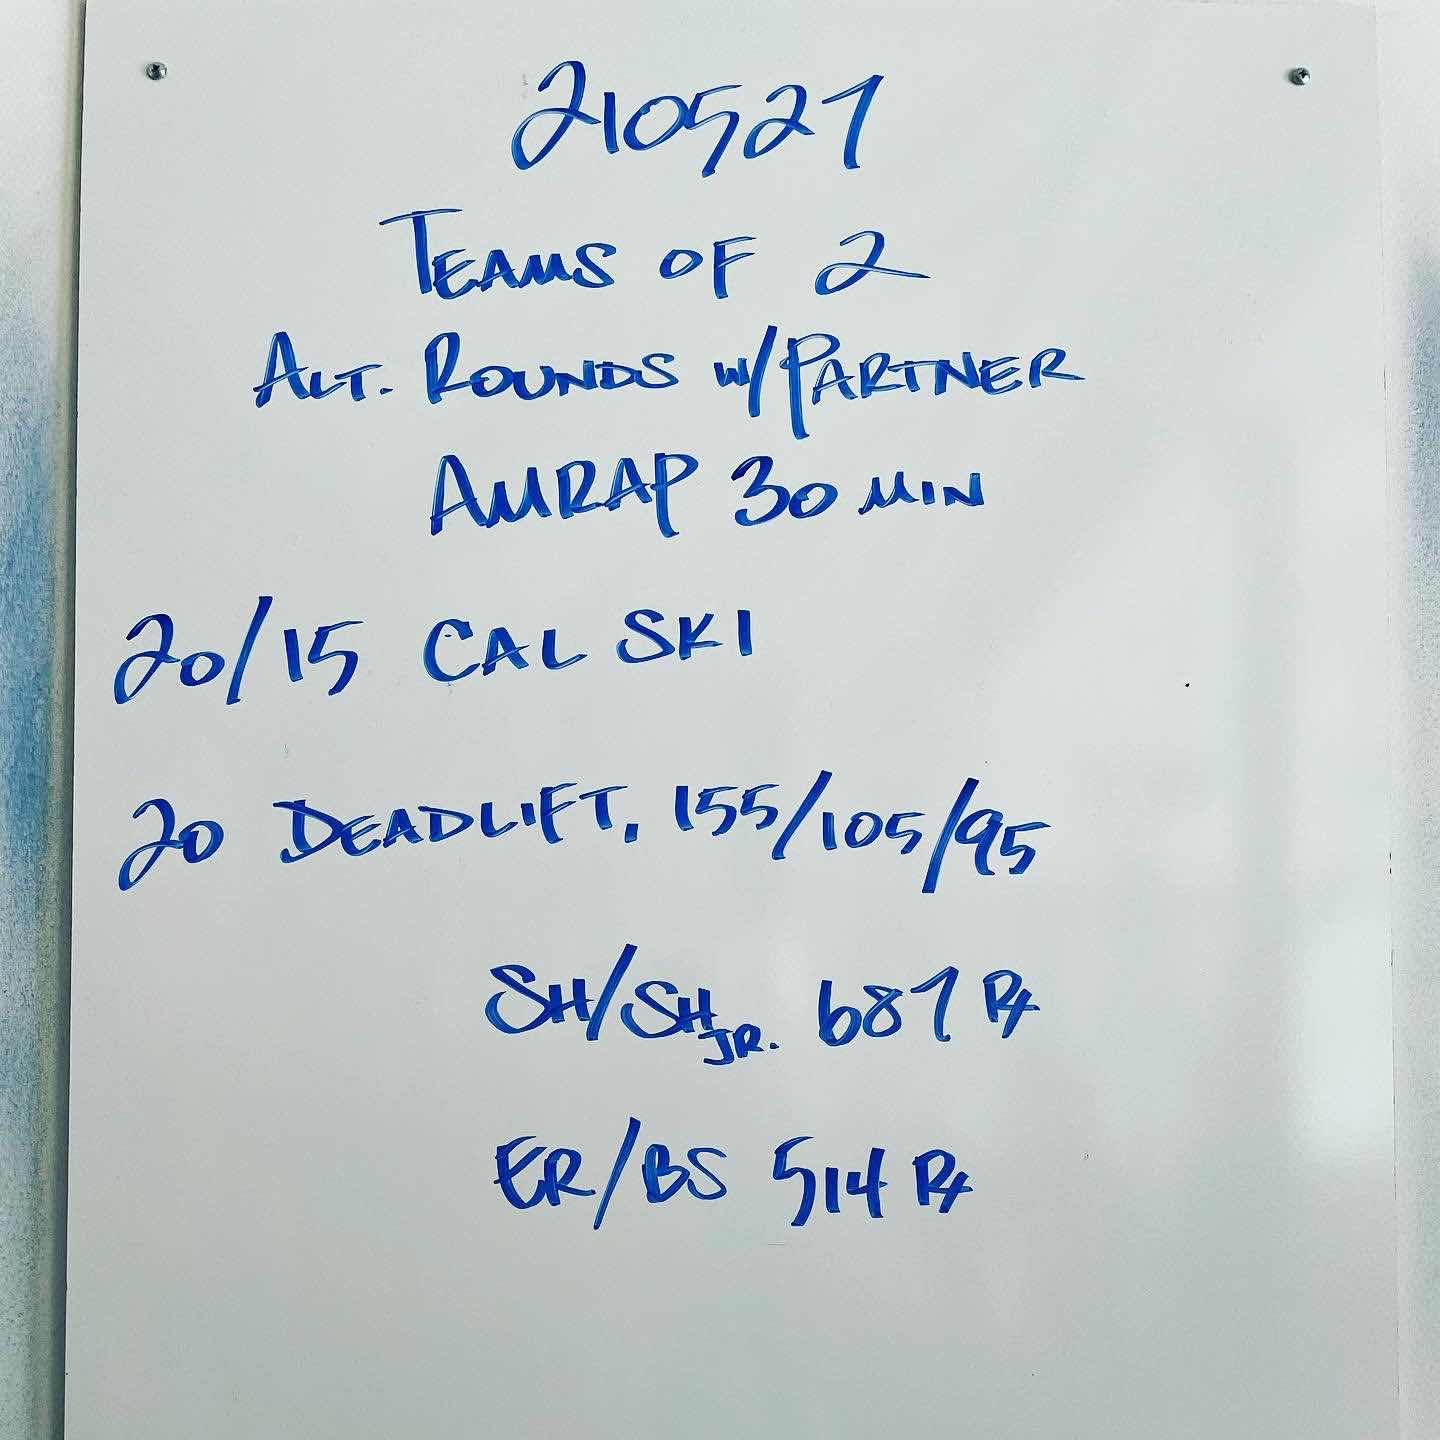 210527
TEAMS OF 2
ALT. ROUNDS W/PARTNER
AMRAP 30 MIN
20/15 CAL SKI
20 DEADLIFT, 155/105/95
SH/SH JR. 687 RX
ER/BS 514 RX